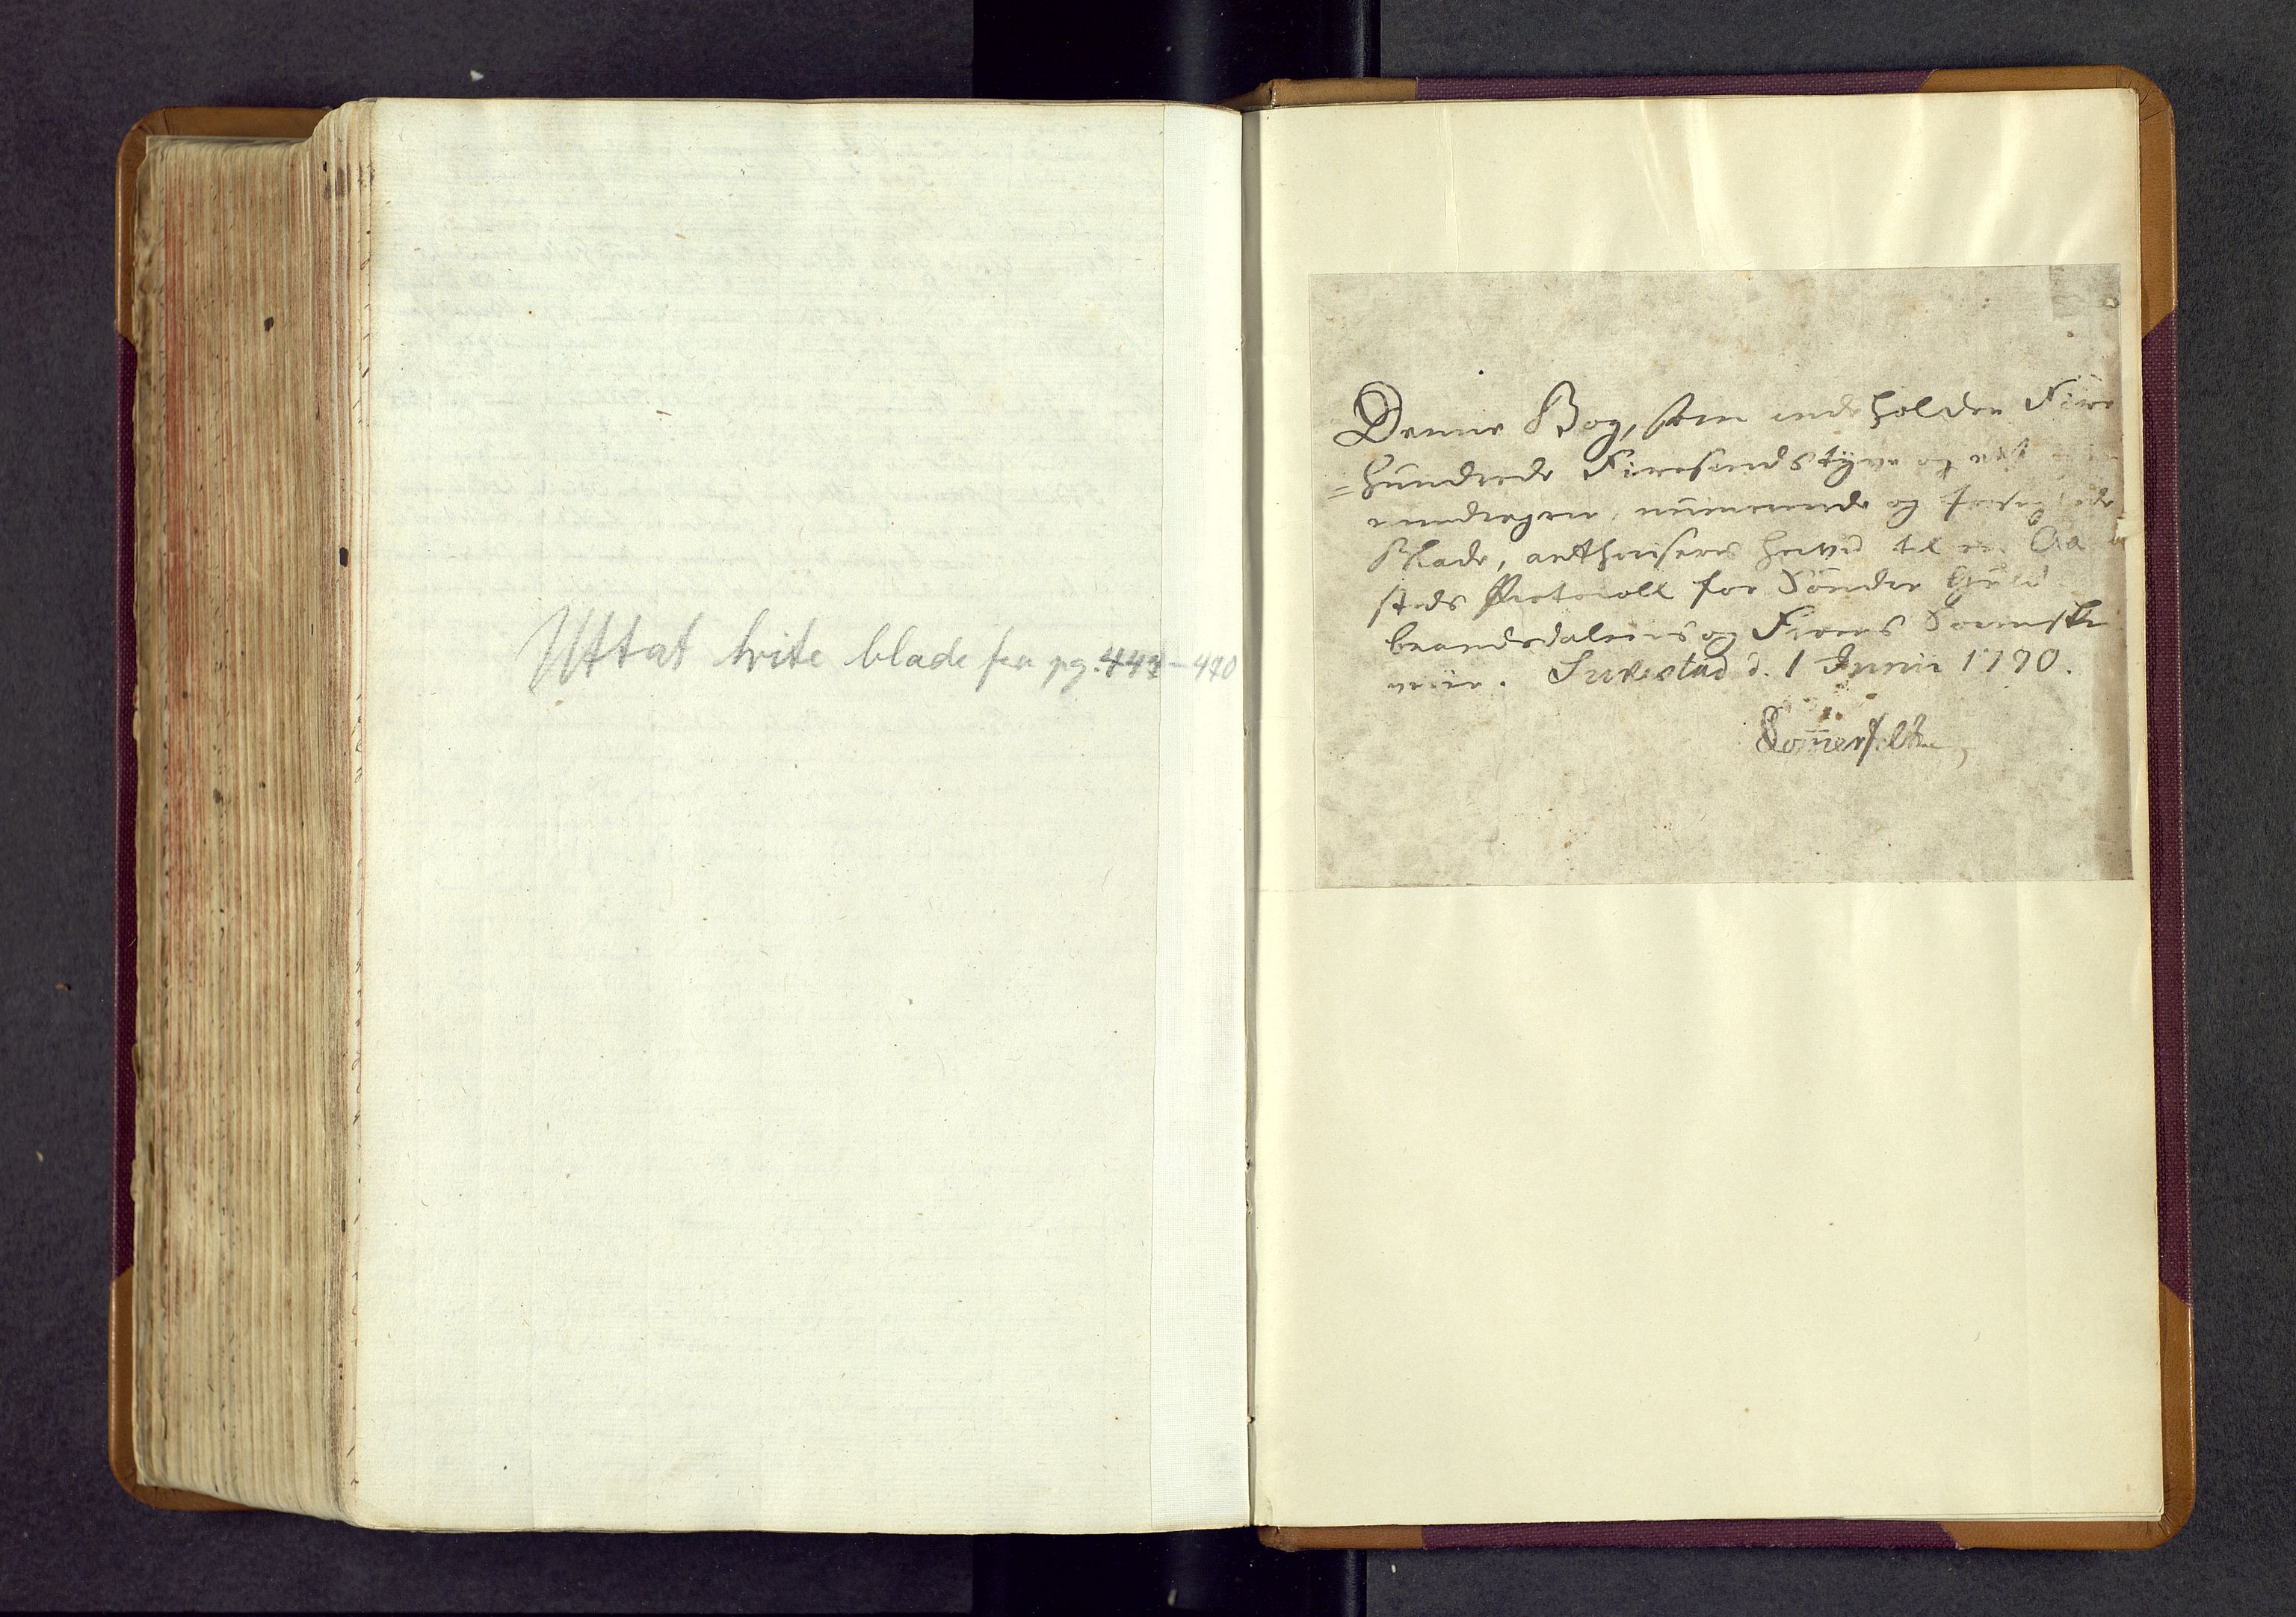 Uttat hvite blade fra pg. 444-470
Denne Bog, som indeholder Fire
=hundrede Firesindstyve og
igiennemdragne, numererede og forseglede
Blade, authoriseres herved til en
steds Protocoll for Sönder Guld
brandsdalens og Frons Sorenskr
verie. Sukestad d. 1 Junii 1790.
Sommerfeldt